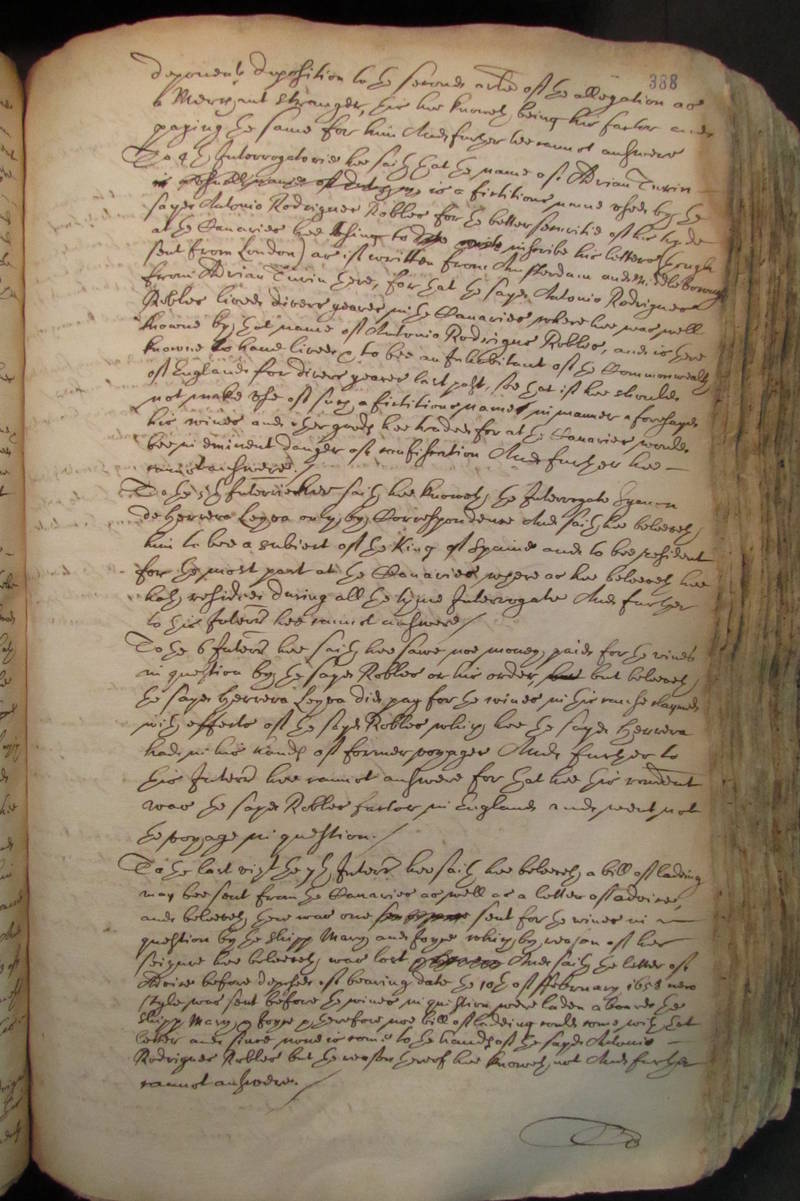 388
deponents deposition to the second artle of the allegation as
a Merchant stranger, this hee knoweth being his factor and
paying the same for him And further hee cannot answere
To the 4th Interrogatorie hee saith that the name of Adrian Turin
is a fictitious name used by the
sayd Antonio Rodrigues Robles for the better securitie of his trade
at the Canaries hee using to inscribe his letters (though
sent from London) as if written from Amsterdam and Middleborough
from Adrian Turin there, for that the sayd Antonio Rodrigues
Robles lived divers yeares in the Canaries where hee was well
knowne by that name of Antonio Rodrigues Robles, and is there
knowne to have lived & to bee an Inhabitant of the Commonwealth
of England for divers yeares last past, soe that if hee should
not make use of such a fictitious name in manner aforesayd
his wines and other goods hee trades for at the Canaries would
bee in eminent danger of confiscation And further hee
cannot answere./
To the 5th Interrie hee saith hee knoweth the Interrogate Symon
de Herrera Leyva only by Correspondence And saith hee beleeveth
him to bee a subiect of the King of Spaine and to bee resident
for the most part at the Canaries where as hee beleeveth hee
hath resided during all the tyme Interrogate And further
to this Interrie hee cannot answere/
To the 6 Interrie hee saith hee sawe noe money paid for the wines
in question by the sayd Robles or his order, but beleeveth
the sayd Herrera Leyva did pay for the wines in this cause claymed
with effects of the sayd Robles which hee the sayd Herrera
had in his hands of former voyages And further to
this Interrie hee cannot answere for that hee this rendent
was the sayd Robles factor in England and went not
the voyage in question./
To the last vizt the 7th Interrie hee saith hee beleeveth a bill of lading
may bee sent from the Canaries as well as a letter of advice,
and beleeveth there was one sent for the wines in
question by the shipp Mary and Joyce which by reason of her
seizure hee beleeveth was lost And saith the letter of
Advice before deposed of bearing date the 10th of ffebruary 1658 new
style was sent before the wines in question were laden aboard the
shipp Mary & Joyce & therefore noe bill of ladeing could come with that
letter and since none is come to the hands of the sayd Antonio
Rodrigues Robles but the reason thereof hee knoweth not And further
cannot answere./
To